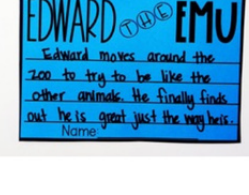 EDWARD THE EMU
Edward moves around the
zoo to try to be like the
other animals. He finally finds
out he is great just the way he is.
Name: